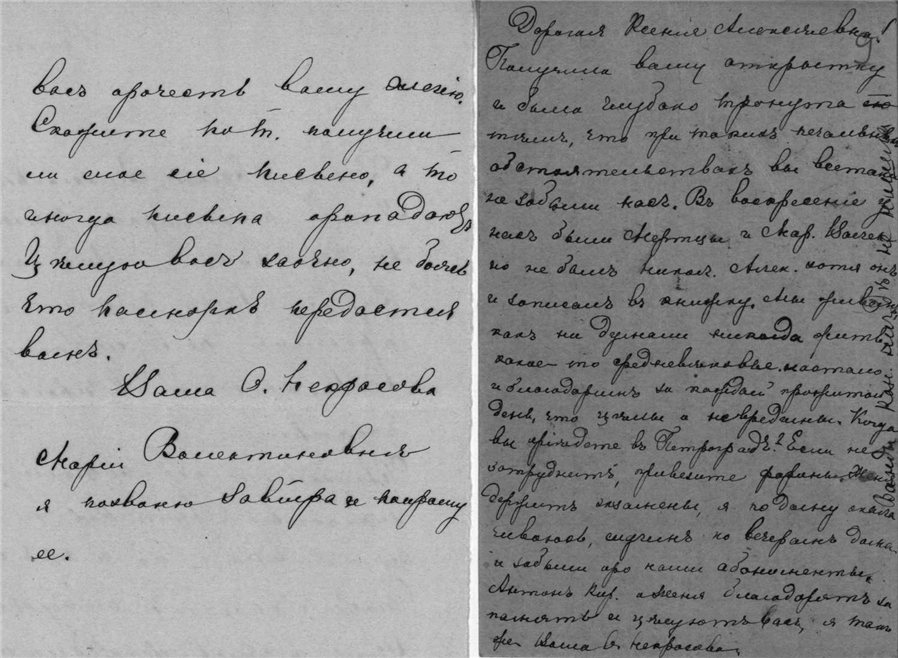 васъ прочесть вашу элегію.
Скажите получили
ли мое сіе письмено, а то
иногда письмена пропадаютъ
Цѣлую васъ заочно, не боясь
что насморкъ передастся
вамъ.
Ваша О. Некрасова
Маріи Валентиновнѣ
я позвоню завтра и попрошу
ее.
Дорогая Ксенія Алексѣевна!
Получила вашу открытку
и была глубоко тронута
тѣмъ, что при такихъ печальныхъ
обстоятельствахъ вы всетаки
не забыли насъ. Въ воскресеніе у
насъ были Мертцы и Мар. Вален.
но не былъ Никол. Алек. хотя онъ
и записалъ въ книжку. Мы живемъ
какъ ни думали никогда жить
какое-то средневѣковье настало
и благодаримъ за каждый прожитой
день, что цѣлы и невредимы. Когда
вы пріѣдете въ Петроградъ? Если не
затруднитъ, привезите
держитъ экзамены, я по долгу
сидимъ по вечерамъ дома
и забыли про наши абонементы.
Антонъ и Женя благодарятъ за
память и цѣлуютъ васъ, я такъ
же Ваша О. Некрасова.